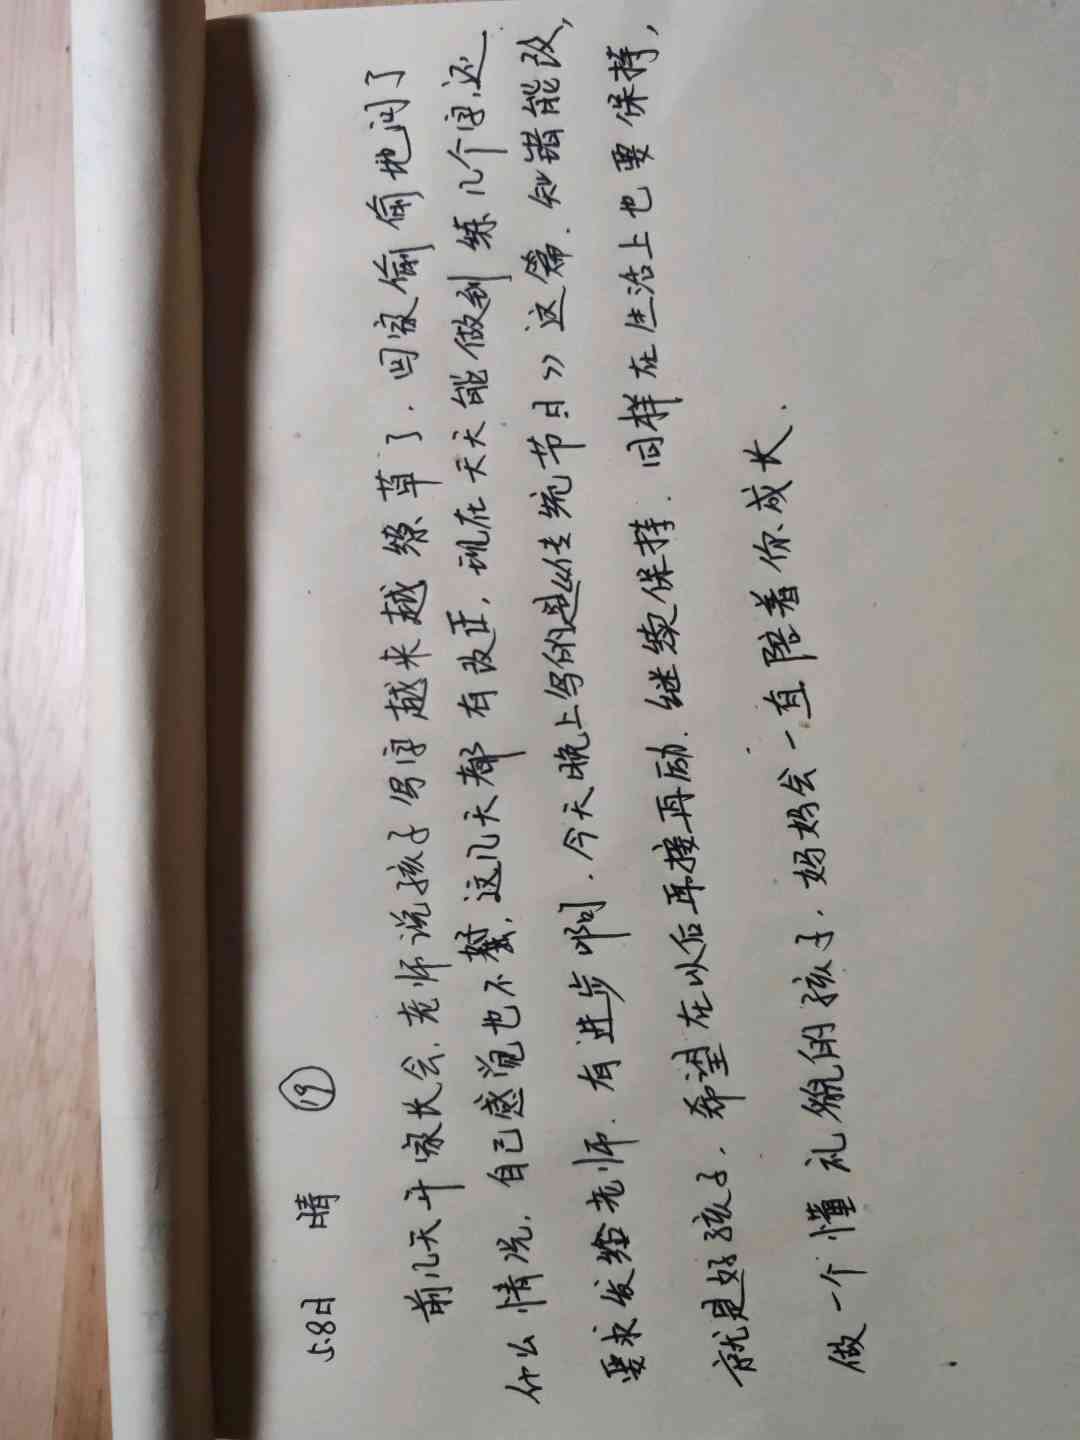 5.8日 晴 ⑲
前几天开家长会.老师说孩子写字越来越缭草了.回家偷偷地问了
什么情况.自己感觉也不,这几天都有改正,现在天天能做到练几个字,还
要求发给老师.有进步啊.今天晚上写的是《传统节日》这篇.知错能改,
就是好孩子.希望在以后再接再励.继续保持.同样在生活上也要保持,
做一个懂礼貌的孩子.妈妈会一直陪着你成长.